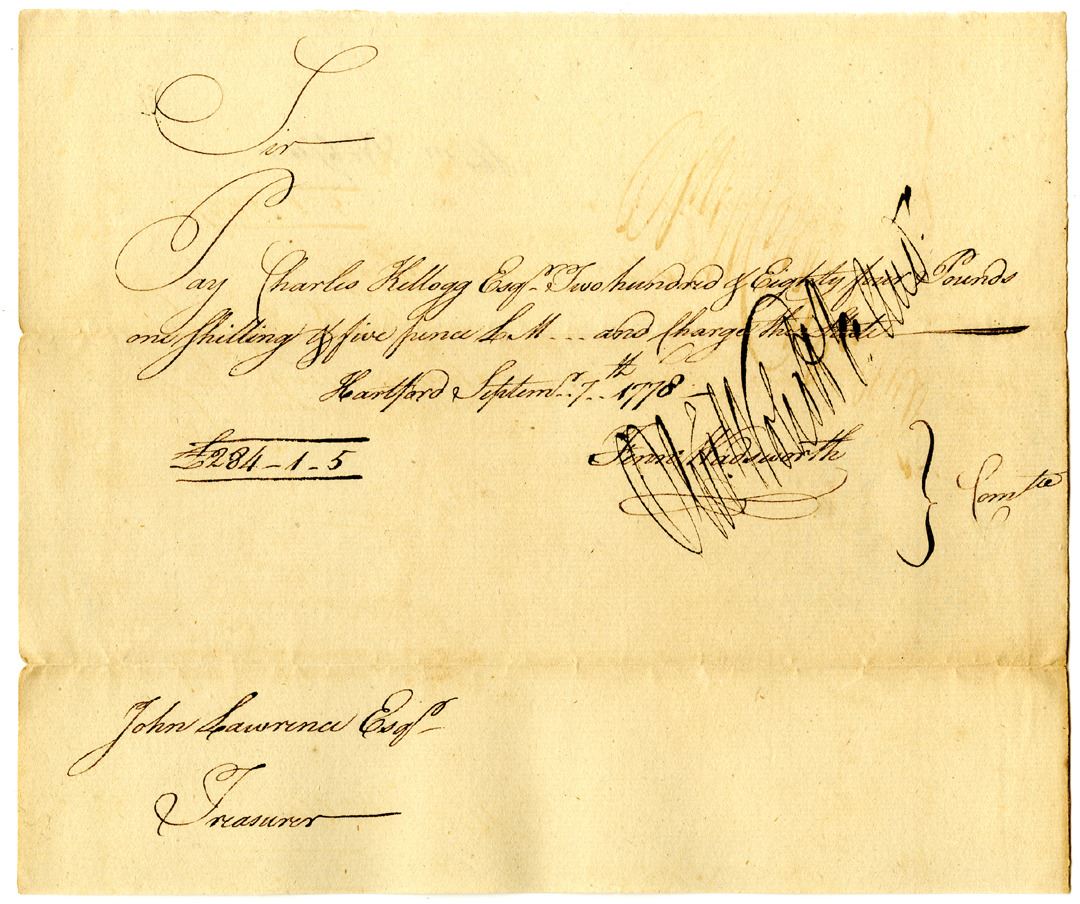 Sir
Pay Charles Kellogg Esqr. Two hundred & Eighty four Pounds
one shilling & five pence L M ... and Charge the State
Hartford Septemr. 7th 1778
£284-1-5
Fenn Wadsworth } Comtee
John Lawrence Esqr.
Treasurer